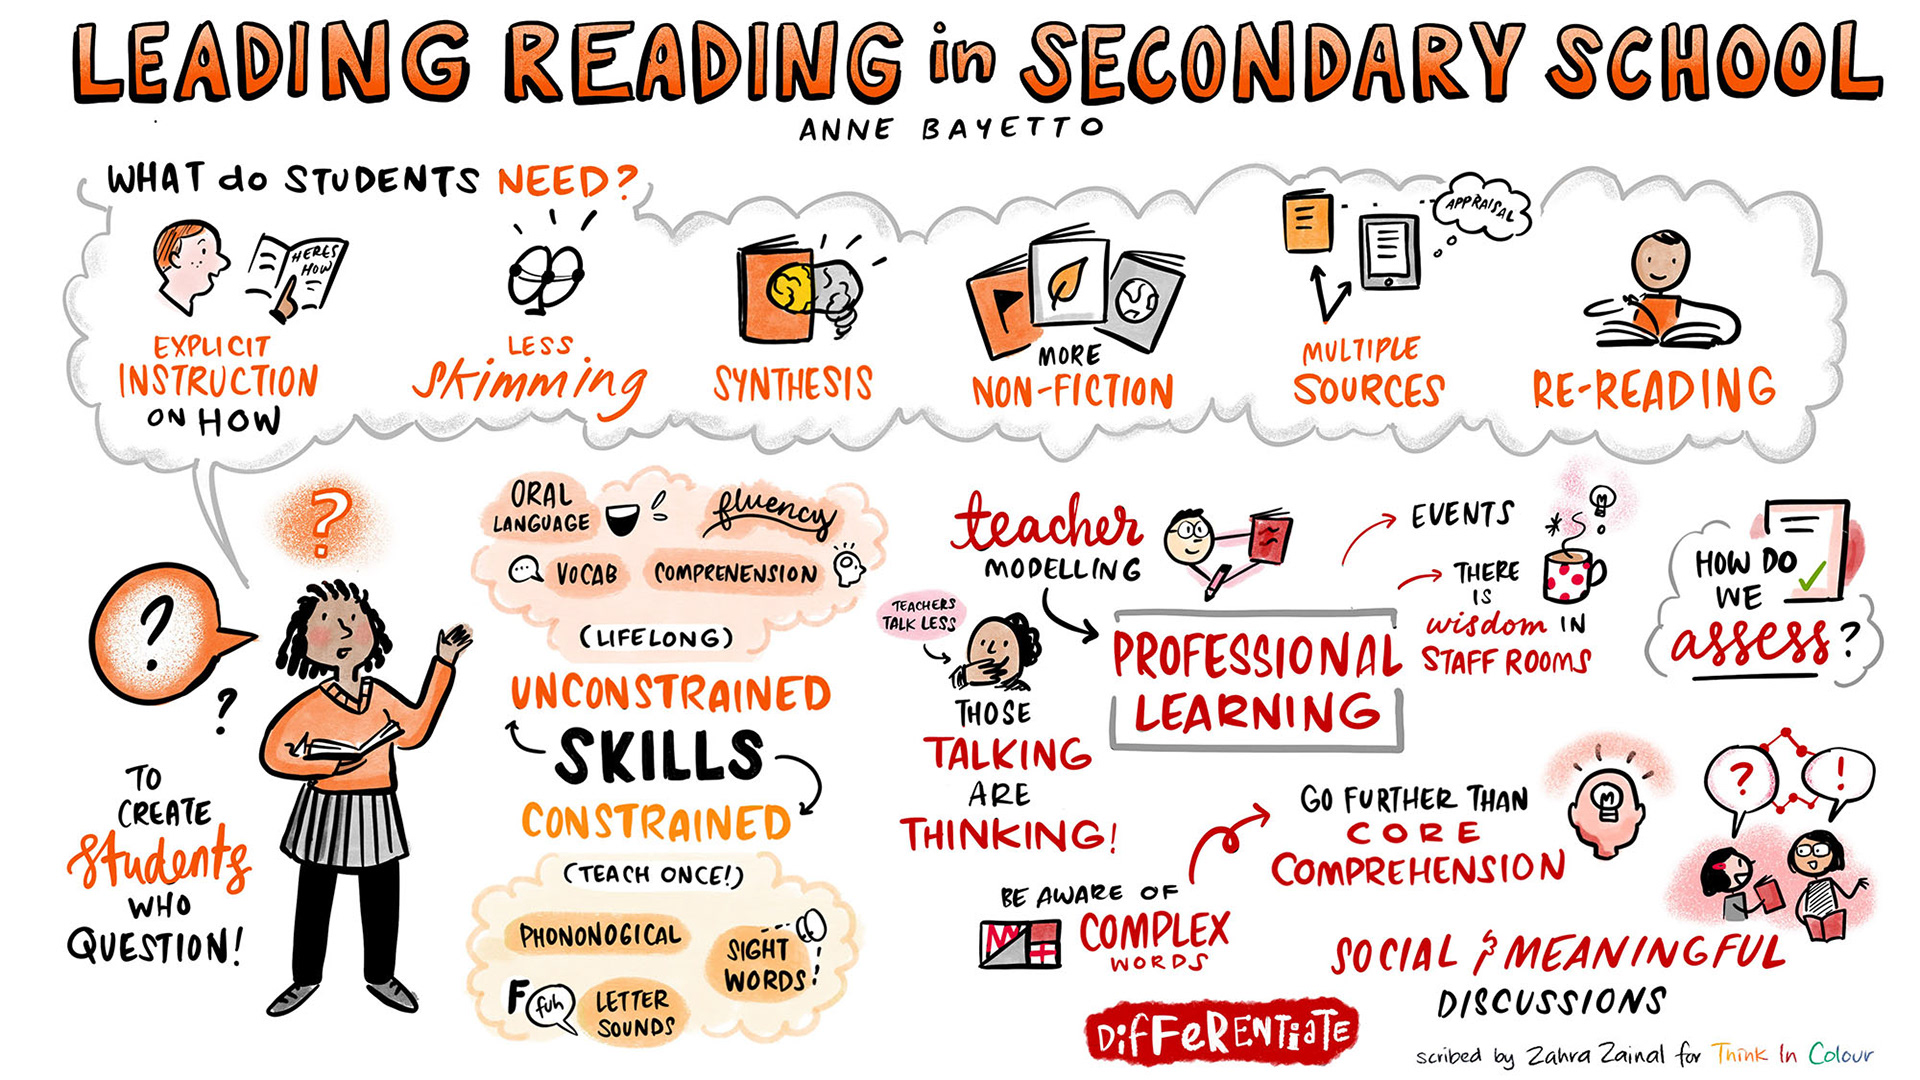 LEADING READING in SECONDARY SCHOOL
ANNE BAYETTO
WHAT do STUDENTS NEED?
HERES
HOW
EXPLICIT
INSTRUCTION
ON HOW
LESS
skimming
SYNTHESIS
MORE
NON-FICTION
APPRAISAL
MULTIPLE
SOURCES
RE-READING
?
?
?
TO
CREATE
students
WHO
QUESTION!
ORAL
LANGUAGE
fluency
VOCAB
COMPRENENSION
(LIFELONG)
UNCONSTRAINED
SKILLS
CONSTRAINED
(TEACH ONCE!)
PHONONOGICAL
SIGHT
WORDS!
F
fuh
LETTER
SOUNDS
teacher
MODELLING
TEACHERS
TALK LESS
THOSE
TALKING
ARE
THINKING!
PROFESSIONAL
LEARNING
EVENTS
THERE
IS
wisdom IN
STAFF ROOMS
HOW DO
WE
assess?
BE AWARE OF
COMPLEX
WORDS
GO FURTHER THAN
CORE
COMPREHENSION
?
!
SOCIAL & MEANINGFUL
DISCUSSIONS
DiFFeRENTiaTE
scribed by Zahra Zainal for Think In Colour